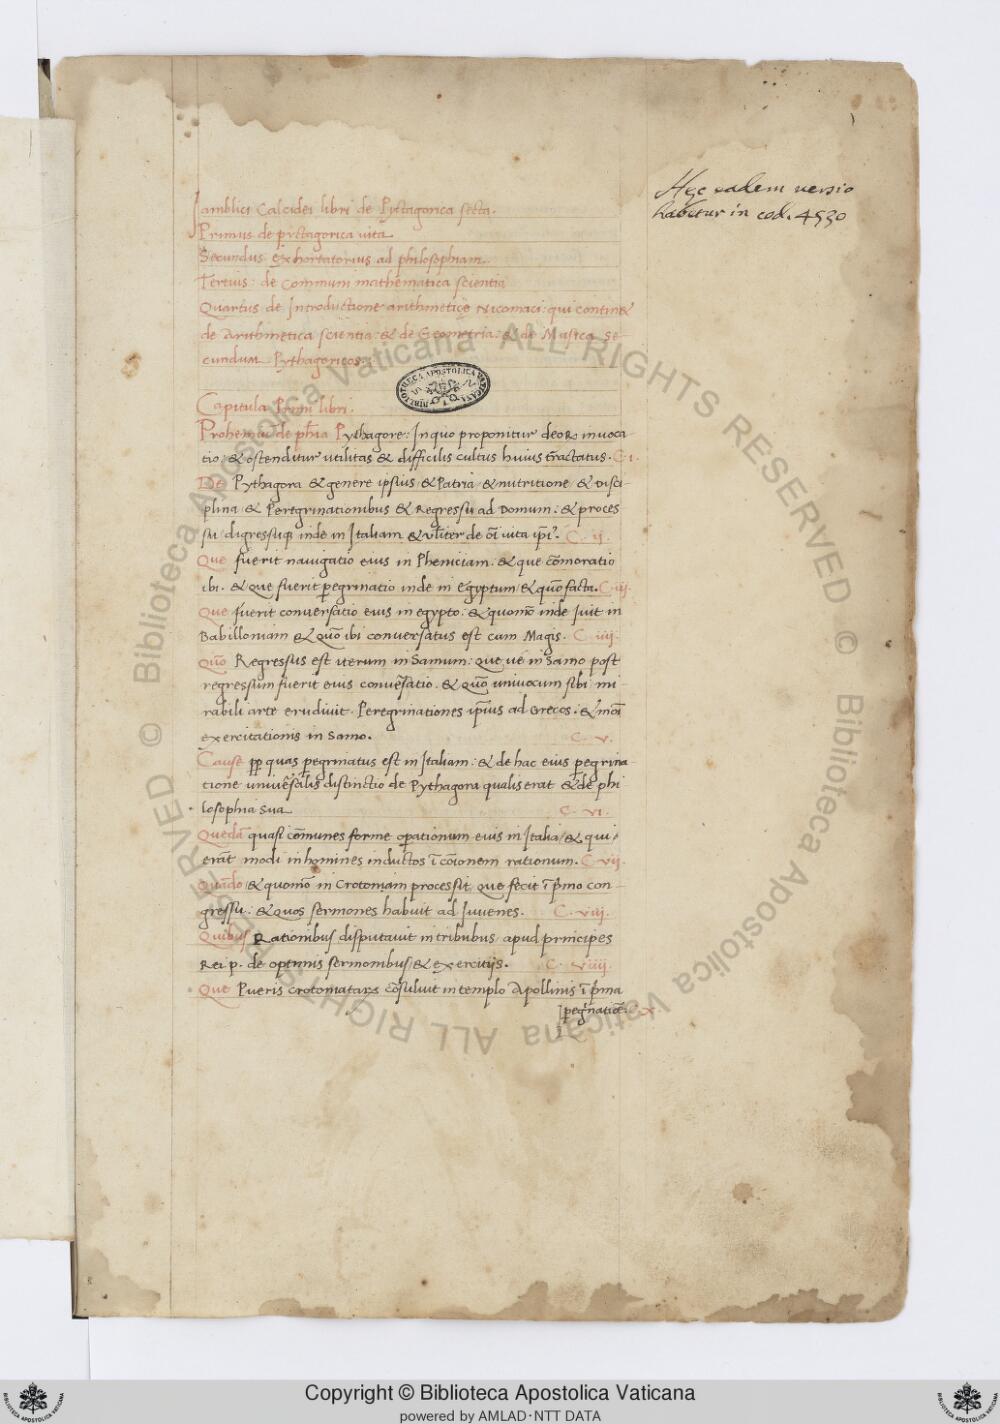 Hęc eadem versio
habetur in cod. 4530
Jamblici Calcidei libri de Pyctagorica secta.
Primus de pyctagorica vita
Secundus exhortatorius ad philosophiam.
Tertius: de Communi mathematica scientia
Quartus de Introductione arithmeticę Nicomaci: qui continet
de Arithmetica scientia: & de Geometria: & de Musica se-
cundum Pythagoricos.
BIBLIOTECA APOSTOLICA VATICANA
Capitula Primi libri.
Prohemiū de phīa Pythagore: In quo proponitur deoꝝ invoca-
tio: & ostenditur utilitas & difficilis cultus huius tractatus. C. i.
De Pythagora & genere ipsius & Patria / & nutritione / & disci-
plina / & Peregrinationibus & Regressu ad Domum: & proces
su / digressuqꝫ inde in Italiam & vl̄iter de oī vita ip̄i9. C. ii.
Que fuerit navigatio eius in Pheniciam: & que cōmoratio
ibi. & que fuerit pegrinatio inde in Egyptum / & quō facta. C. iii.
Que fuerit conversatio eius in egypto: & quomō inde ivit in
Babilloniam & quō ibi conversatus est cum Magis. C. iiii.
Quō Regressus est iterum in Samum: que ve in Samo post
regressum fuerit eius conversatio. & quō univocum sibi mi-
rabili arte erudivit. Peregrinationes ip̄ius ad Grecos: & modī
exercitationis in Samo. C. v.
Cause pp quas pegrinatus est in Italiam: & de hac eius pegrina
tione universalis distinctio de Pythagora qualis erat & de phi
losophia sua C. vi.
Quedā quasi cōmunes forme opationum eius in Italia / & qui /
erāt modi in homines inductos ī cōionem rationum. C. vii.
Quādo / & quomō in Crotoniam processit que fecit ī pmo con-
gressu: & quos sermones habuit ad Juvenes. C. viii.
Quibus Rationibus disputavit in tribubus / apud principes
Rei p. de optimis sermonibus / & exercitijs. C. viiii.
Que Pueris crotoniatars cōsuluit in templo Apollinis ī pma
pegrinatiōe. C. x
Copyright © Biblioteca Apostolica Vaticana
powered by AMLAD·NTT DATA
© Biblioteca Apostolica Vaticana ALL RIGHTS RESERVED © Biblioteca Apostolica Vaticana ALL RIGHTS RESERVED